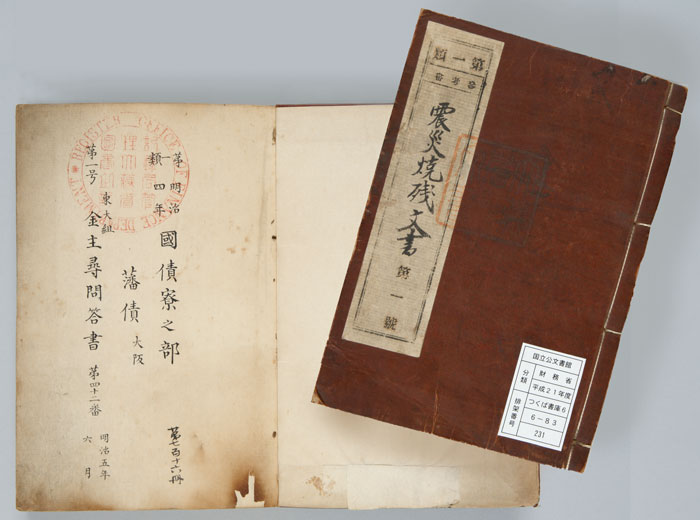 第一類
震災焼残文書
第一號
国立公文書館
分類
財務省
平成21年度
つくば書庫6
6-83
231
排架番号
第一類
明治四年
國債寮之部
藩債 大阪
第一号 東大組 金主尋問答書 第四十二番
明治五年
六月
第七百十六冊